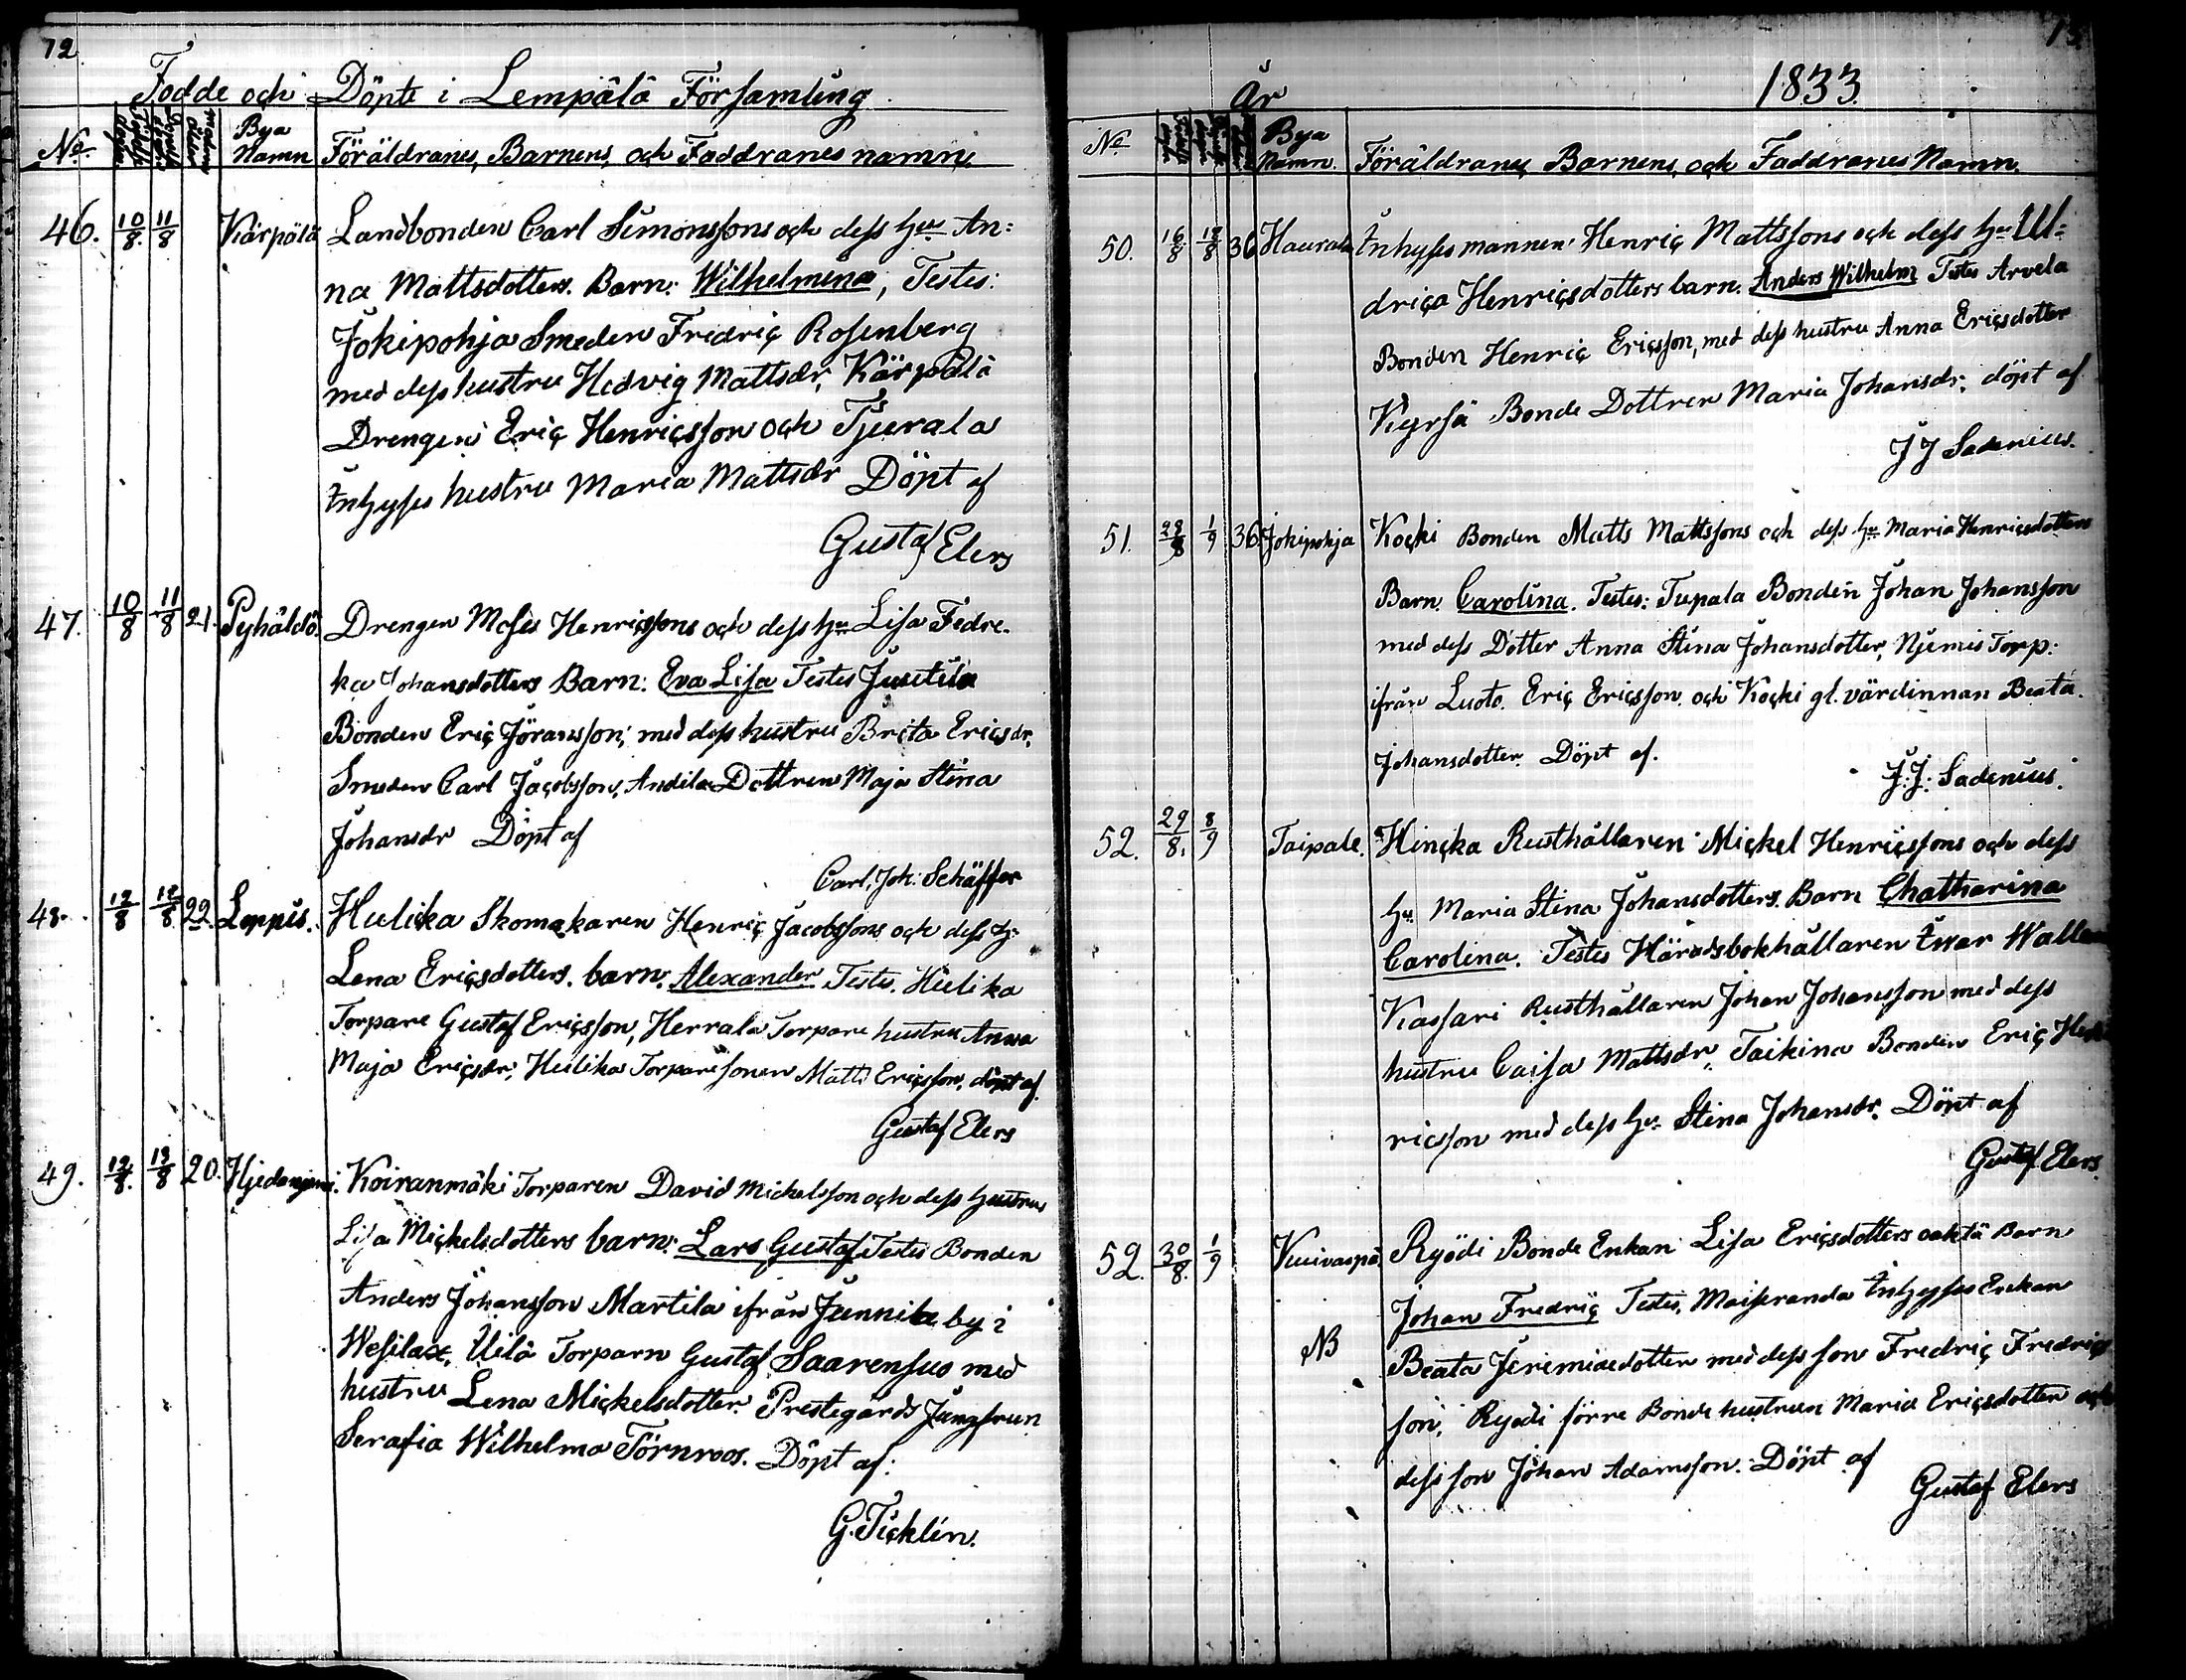 72
Födde och Döpte i Lempälä Församling.
No. Födelse dagen Döpelse dagen Modrens ålder Bya Namn Föräldranes, Barnens, och Faddranes namn.
46. 10/8. 11/8 Kärpälä Landbonden Carl Simonssons och dess hu An=
na Mattsdotters. Barn: Wilhelmina, Testes:
Jokipohja Smeden Fredric Rosenberg
med dess hustru Hedvig Mattsdr, Kärpälä
Drengen Eric Henricsson och Tjurala
Inhyses hustru Maria Mattsdr Döpt af
Gustaf Elers
47. 10/8 11/8 21. Pyhäldö. Drengen Moses Henricssons och dess hu Lisa Fedre-
ka Johansdotters Barn: Eva Lisa Testes Juutila
Bonden Eric Jöransson, med dess hustru Brita Ericsdr,
Smeden Carl Jacobsson, Andila Dottren Maja Stina
Johansdr Döpt af
Carl. Joh: Schäffer
48. 12/8 12/8 22. Loppis. Hulicka Skomakaren Henric Jacobssons och dess h:
Lena Ericsdotters. barn: Alexander Testes. Hulika
Torpare Gustaf Ericsson, Herrala Torpare hustru Anna
Maja Ericsdr, Hulika Torparesonen Matts Ericsson, döpt af.
Gustaf Elers
49. 12/8. 13/8 20. Koiranmäki Torparen David Mickelsson och dess hustru
Lisa Mickelsdotters barn: Lars Gustaf Testes Bonden
Anders Johansson Martila ifrån Junnila by i
Wesilax, Uilä Torparn Gustaf Saarensuo med
hustru Lena Mickelsdotter. Prestegårds Jungfrun
Serafia Wilhelma Törnroos. Döpt af:
G. Ticklén.
År 1833.
No Bya Namn. Föräldranes, Barnens, och Faddranes Namn.
50. 16/8 18/8 36 Haurala Inhyses mannen Henric Mattssons och dess hu Ul=
drica Henricsdotters barn. Anders Wilhelm Testes Arvela
Bonden Henric Ericsson, med dess hustru Anna Ericsdotter
Kyrsä Bonde Dottren Maria Johansdr, döpt af
J J Sadenius.
51. 28/8 1/9 36 Jokipohja Kocki Bonden Matts Mattssons och dess hu Maria Henricsdotters
Barn. Carolina. Testes: Tupala Bonden Johan Johansson
med dess Dotter Anna Stina Johansdotter, Njemis Torp:
ifrån Luoto. Eric Ericsson och Kocki gl. värdinnan Beata.
Johansdotter. Döpt af.
J: J: Sadenius.
52. 29/8. 8/9 Taipale. Hincka Rusthållaren Mickel Henricssons och dess
hu Maria Stina Johansdotters. Barn Chatharina
Carolina. Testes Häradsbokhållaren Iwar
Kassari Rusthållaren Johan Johansson med dess
hustru Caisa Mattsdr, Taikina Bonden Eric
ricsson med dess hu: Stina Johansdr. Döpt af
Gustaf Elers.
52. 30/8. 1/9 Kuivaspä. Ryödi Bonde Enkan Lisa Ericsdotters oäkta Barn
NB Johan Fredric Testes, Maiseranda Inhyses Enkan
Beata Jeremiaedotter med dess son Fredric Fredrics
son, Ryödi förre Bonde hustrun Maria Ericsdotter och
dess son Johan Adamsson. Döpt af
Gustaf Elers